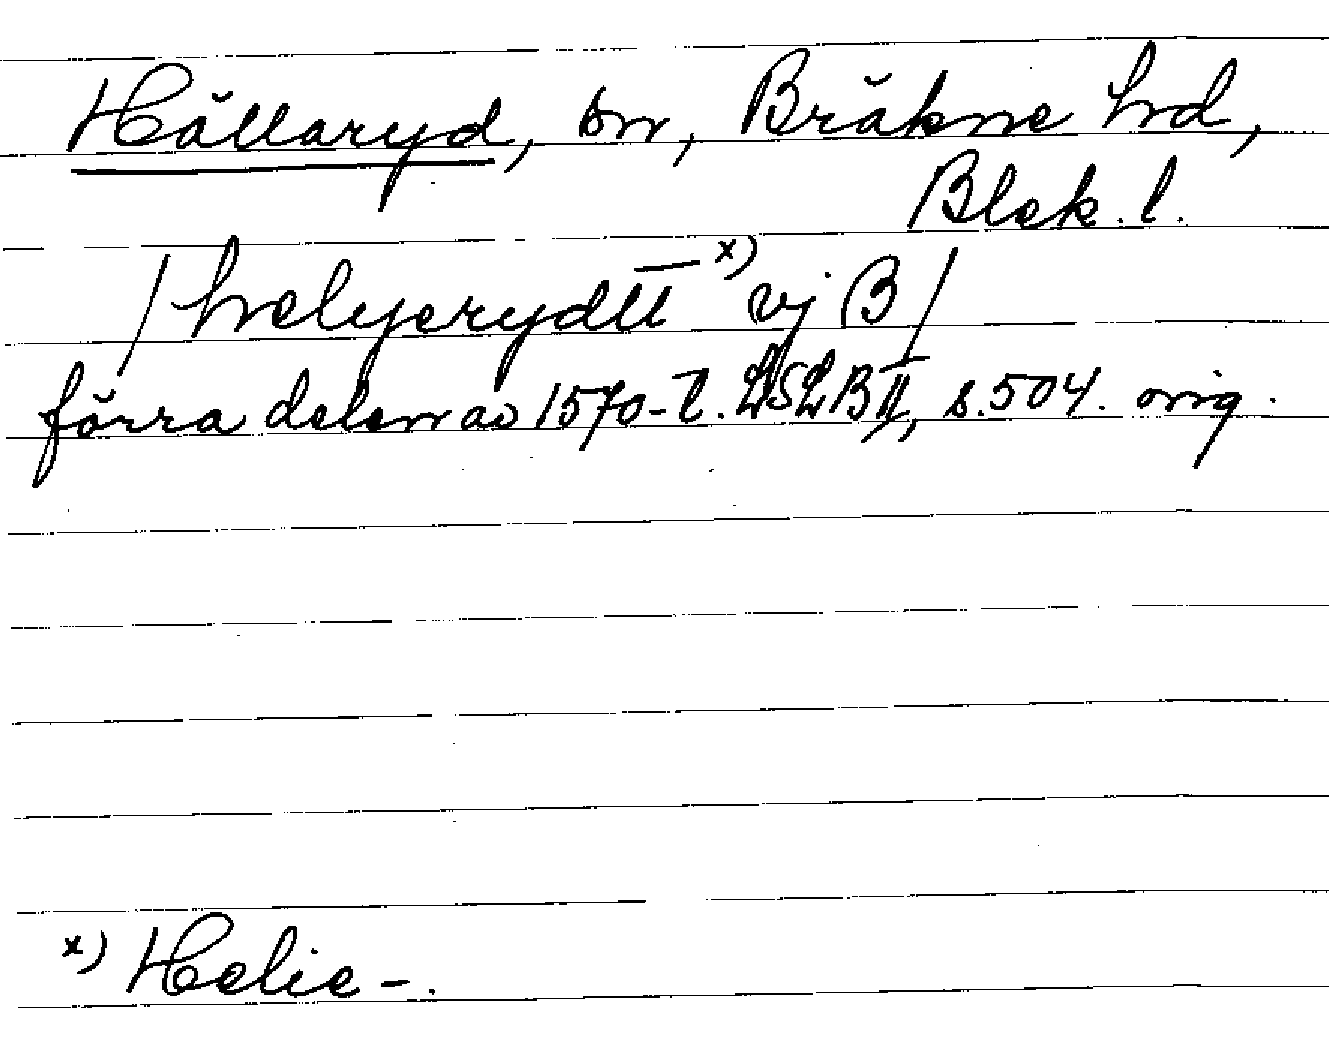 Hällaryd, sn, Bräkne hd,
Blek. l.
/ helyerydtt x) vj B /
förra delen av 1570-t. LSLB II, s. 504. orig.
x) Helie-.